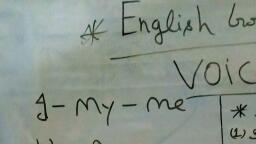 * English
VOIC
I - my - me
*
(1)